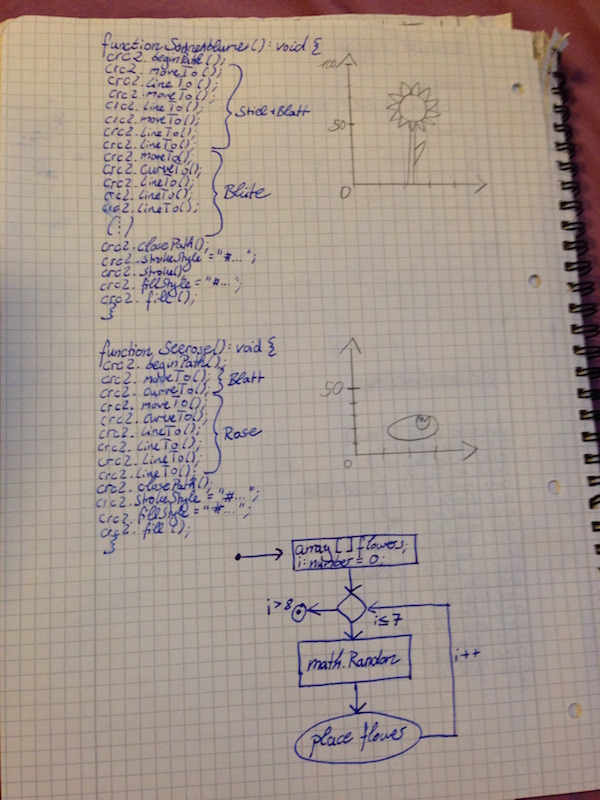 function Sonnenblume(): void {
crc2.beginPath();
crc2.moveTo();
crc2.lineTo();
crc2.moveTo();
crc2.lineTo();
crc2.moveTo();
crc2.lineTo();
crc2.lineTo();
Stiel+Blatt
crc2.moveTo();
crc2.curveTo();
crc2.lineTo();
crc2.lineTo();
crc2.lineTo();
(⋮)
Blüte
crc2.closePath();
crc2.strokeStyle = "#...";
crc2.stroke()
crc2.fillStyle = "#...";
crc2.fill();
}
100
50
0
function Seerose(): void {
crc2.beginPath();
crc2.moveTo();
crc2.curveTo();
Blatt
crc2.moveTo();
crc2.curveTo();
crc2.lineTo();
crc2.lineTo();
crc2.lineTo();
crc2.lineTo();
Rose
crc2.closePath();
crc2.strokeStyle = "#...";
crc2.fillStyle = "#...";
crc2.fill();
}
50
0
array[] flowers;
i: number = 0;
i>8
i≤7
math.Random
i++
place flower